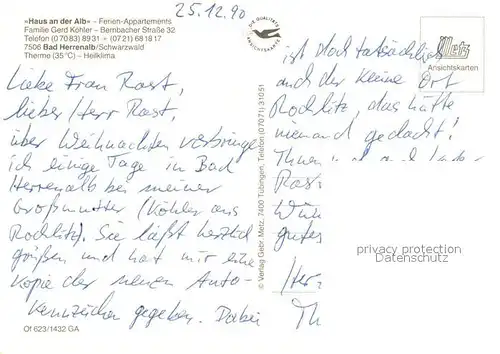 25.12.90
»Haus an der Alb« - Ferien-Appartements
Familie Gerd Köhler - Bernbacher Straße 32
Telefon (07083) 8931 + (0721) 681817
7506 Bad Herrenalb/Schwarzwald
Thermo (35°C) - Heilklima
Liebe Frau Rast,
lieber Herr Rast,
über Weihnachten verbringe
ich einige Tage in Bad
Herrenalb bei meiner
Großmutter (Köhler aus
Rochlitz). Sie läßt herzlich
grüßen und hat mir eine
Kopie der neuen Auto-
kennzeichen gegeben. Dabei
Of 623/1432 GA
DIE QUALITÄTS
ANSICHTSKARTE
© Verlag Gebr. Metz, 7400 Tübingen, Telefon (07071) 31051
Metz
Ansichtskarten
ist doch tatsächlich
auch der kleine Ort
Rochlitz, das hätte
niemand gedacht!
Ihnen und
Ras
Wün
gutes
Her
Th
privacy protection
Datenschutz